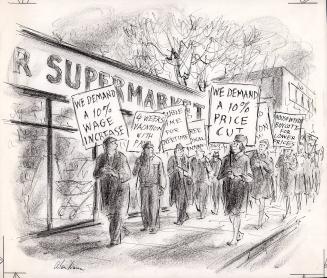 R SUPERMARKET
WE DEMAND
A 10%
WAGE
INCREASE
4 WEEKS
VACATION
WITH
PAY
DOUBLE
TIME
FOR
OVERTIME
WE DEMAND
A 10%
PRICE
CUT
HOUSEWIVES
BOYCOTT
FOR
LOWER
PRICES